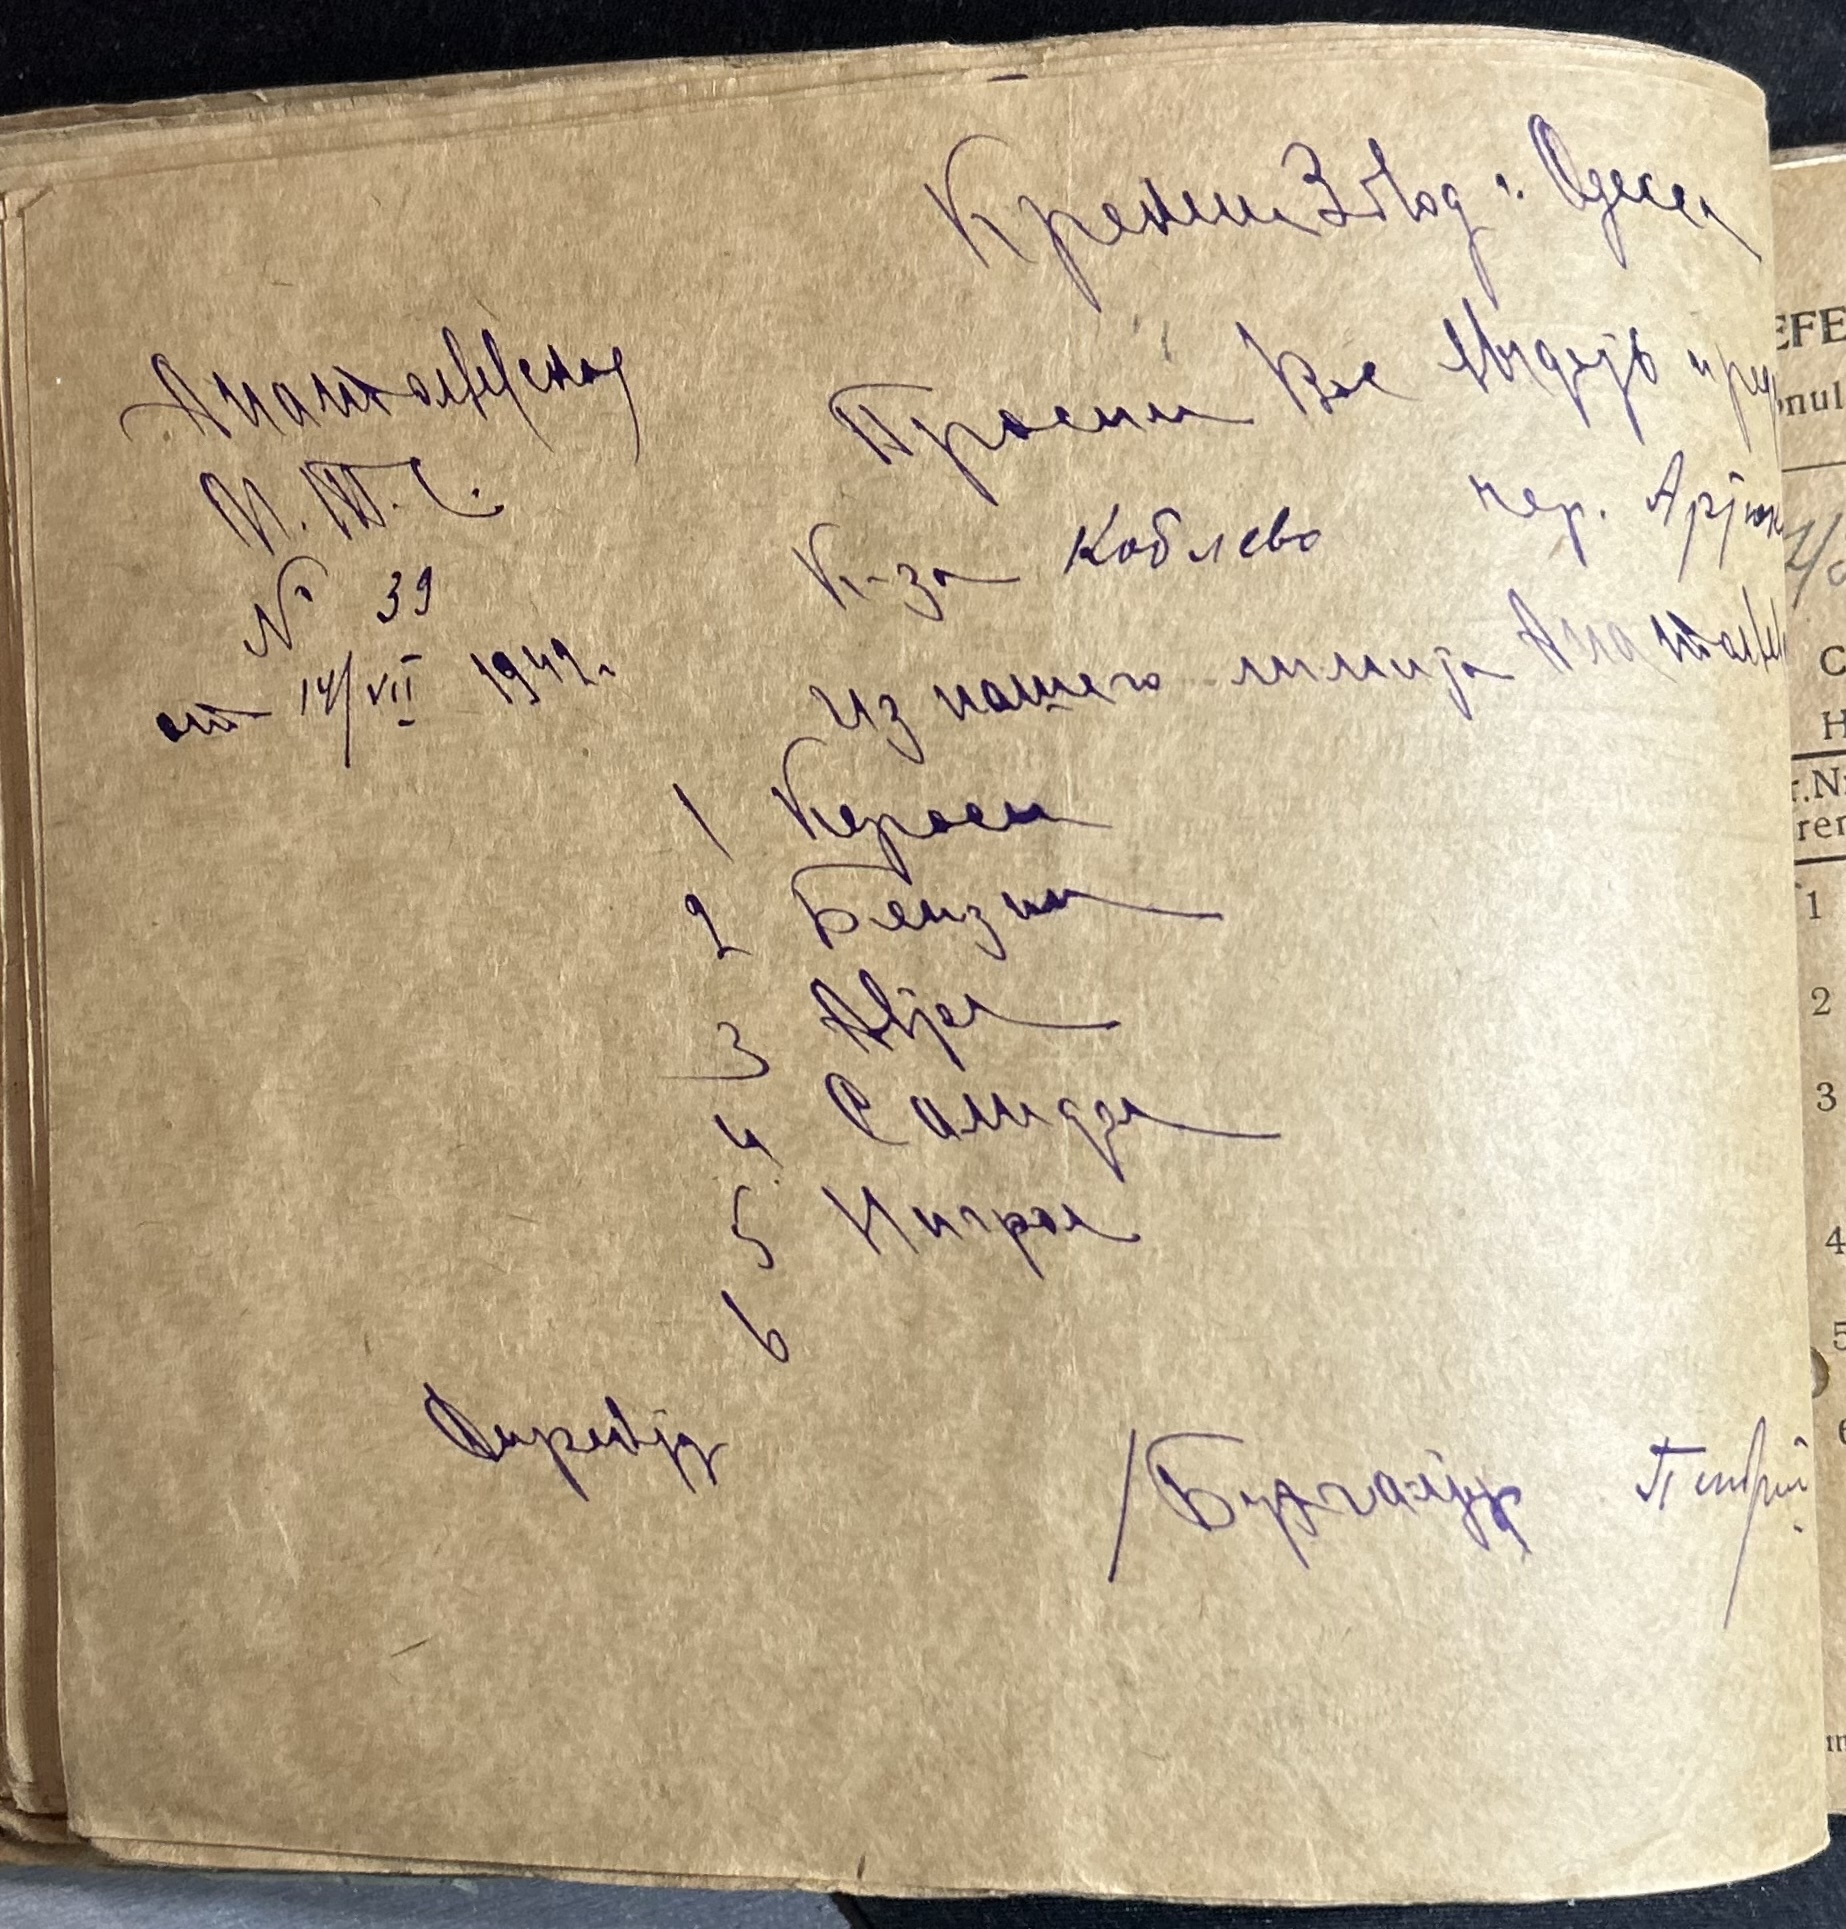 Крекинг Завод г. Одеса
Анатольевская
М.Т.С.
№ 39
от 14/VII 1942 г.
Просим Вас выдать пред
к-за Коблево чер. Артюх
из нашего лимита Анатольев
1 Керосин
2 Бензин
3 Автол
4 Солидол
5 Нигрол
6
Директор
/Бухгалтер
EFE
onul
C
H
r.N
rer
1
2
3
4
5
6